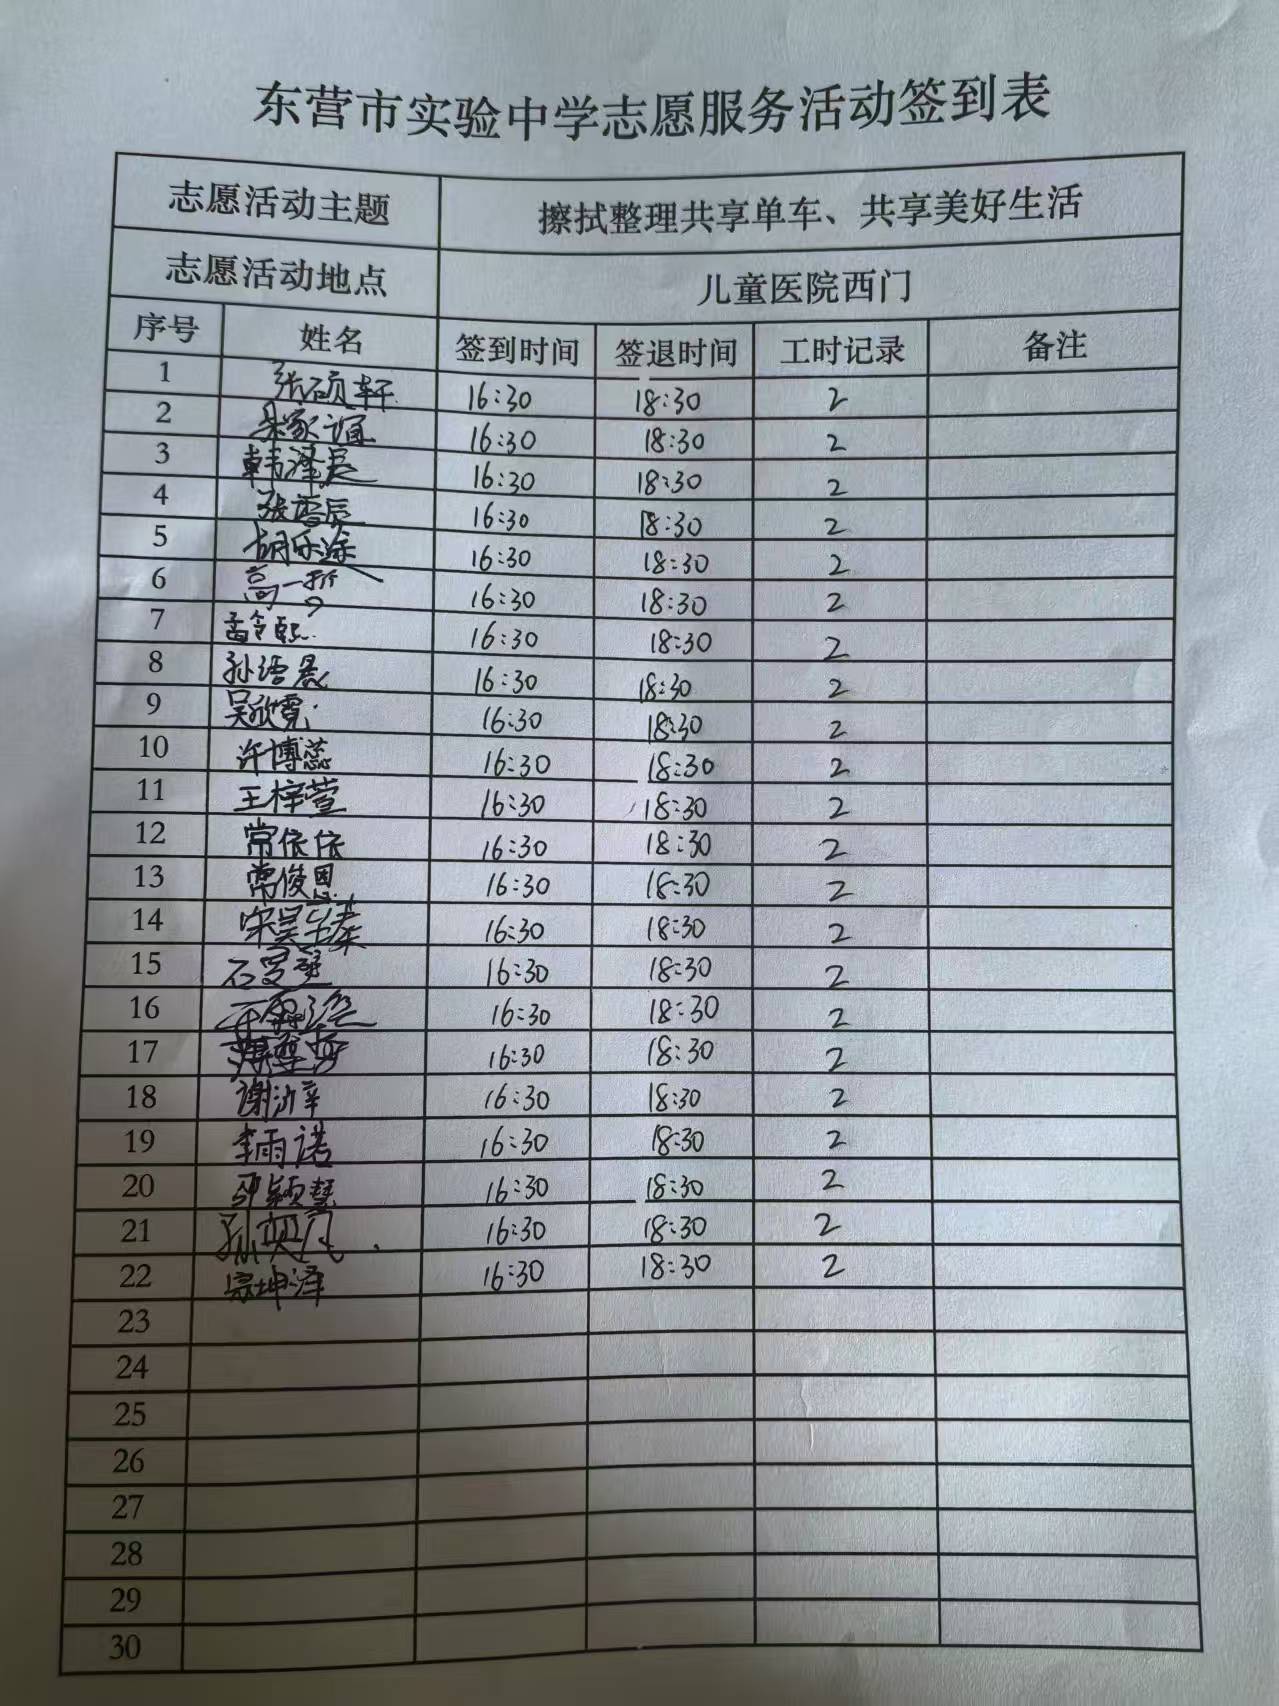 东营市实验中学志愿服务活动签到表
志愿活动主题 擦拭整理共享单车、共享美好生活
志愿活动地点 儿童医院西门
序号 姓名 签到时间 签退时间 工时记录 备注
1 张硕轩 16:30 18:30 2
2 16:30 18:30 2
3 韩泽辰 16:30 18:30 2
4 16:30 18:30 2
5 胡乐涂 16:30 18:30 2
6 高一 16:30 18:30 2
7 孟令熙 16:30 18:30 2
8 孙语晨 16:30 18:30 2
9 吴欣霓 16:30 18:30 2
10 许博蕊 16:30 18:30 2
11 王梓萱 16:30 18:30 2
12 常依依 16:30 18:30 2
13 常俊恩 16:30 18:30 2
14 16:30 18:30 2
15 16:30 18:30 2
16 16:30 18:30 2
17 16:30 18:30 2
18 谢沂辛 16:30 18:30 2
19 李雨诺 16:30 18:30 2
20 16:30 18:30 2
21 16:30 18:30 2
22 宗坤泽 16:30 18:30 2
23
24
25
26
27
28
29
30